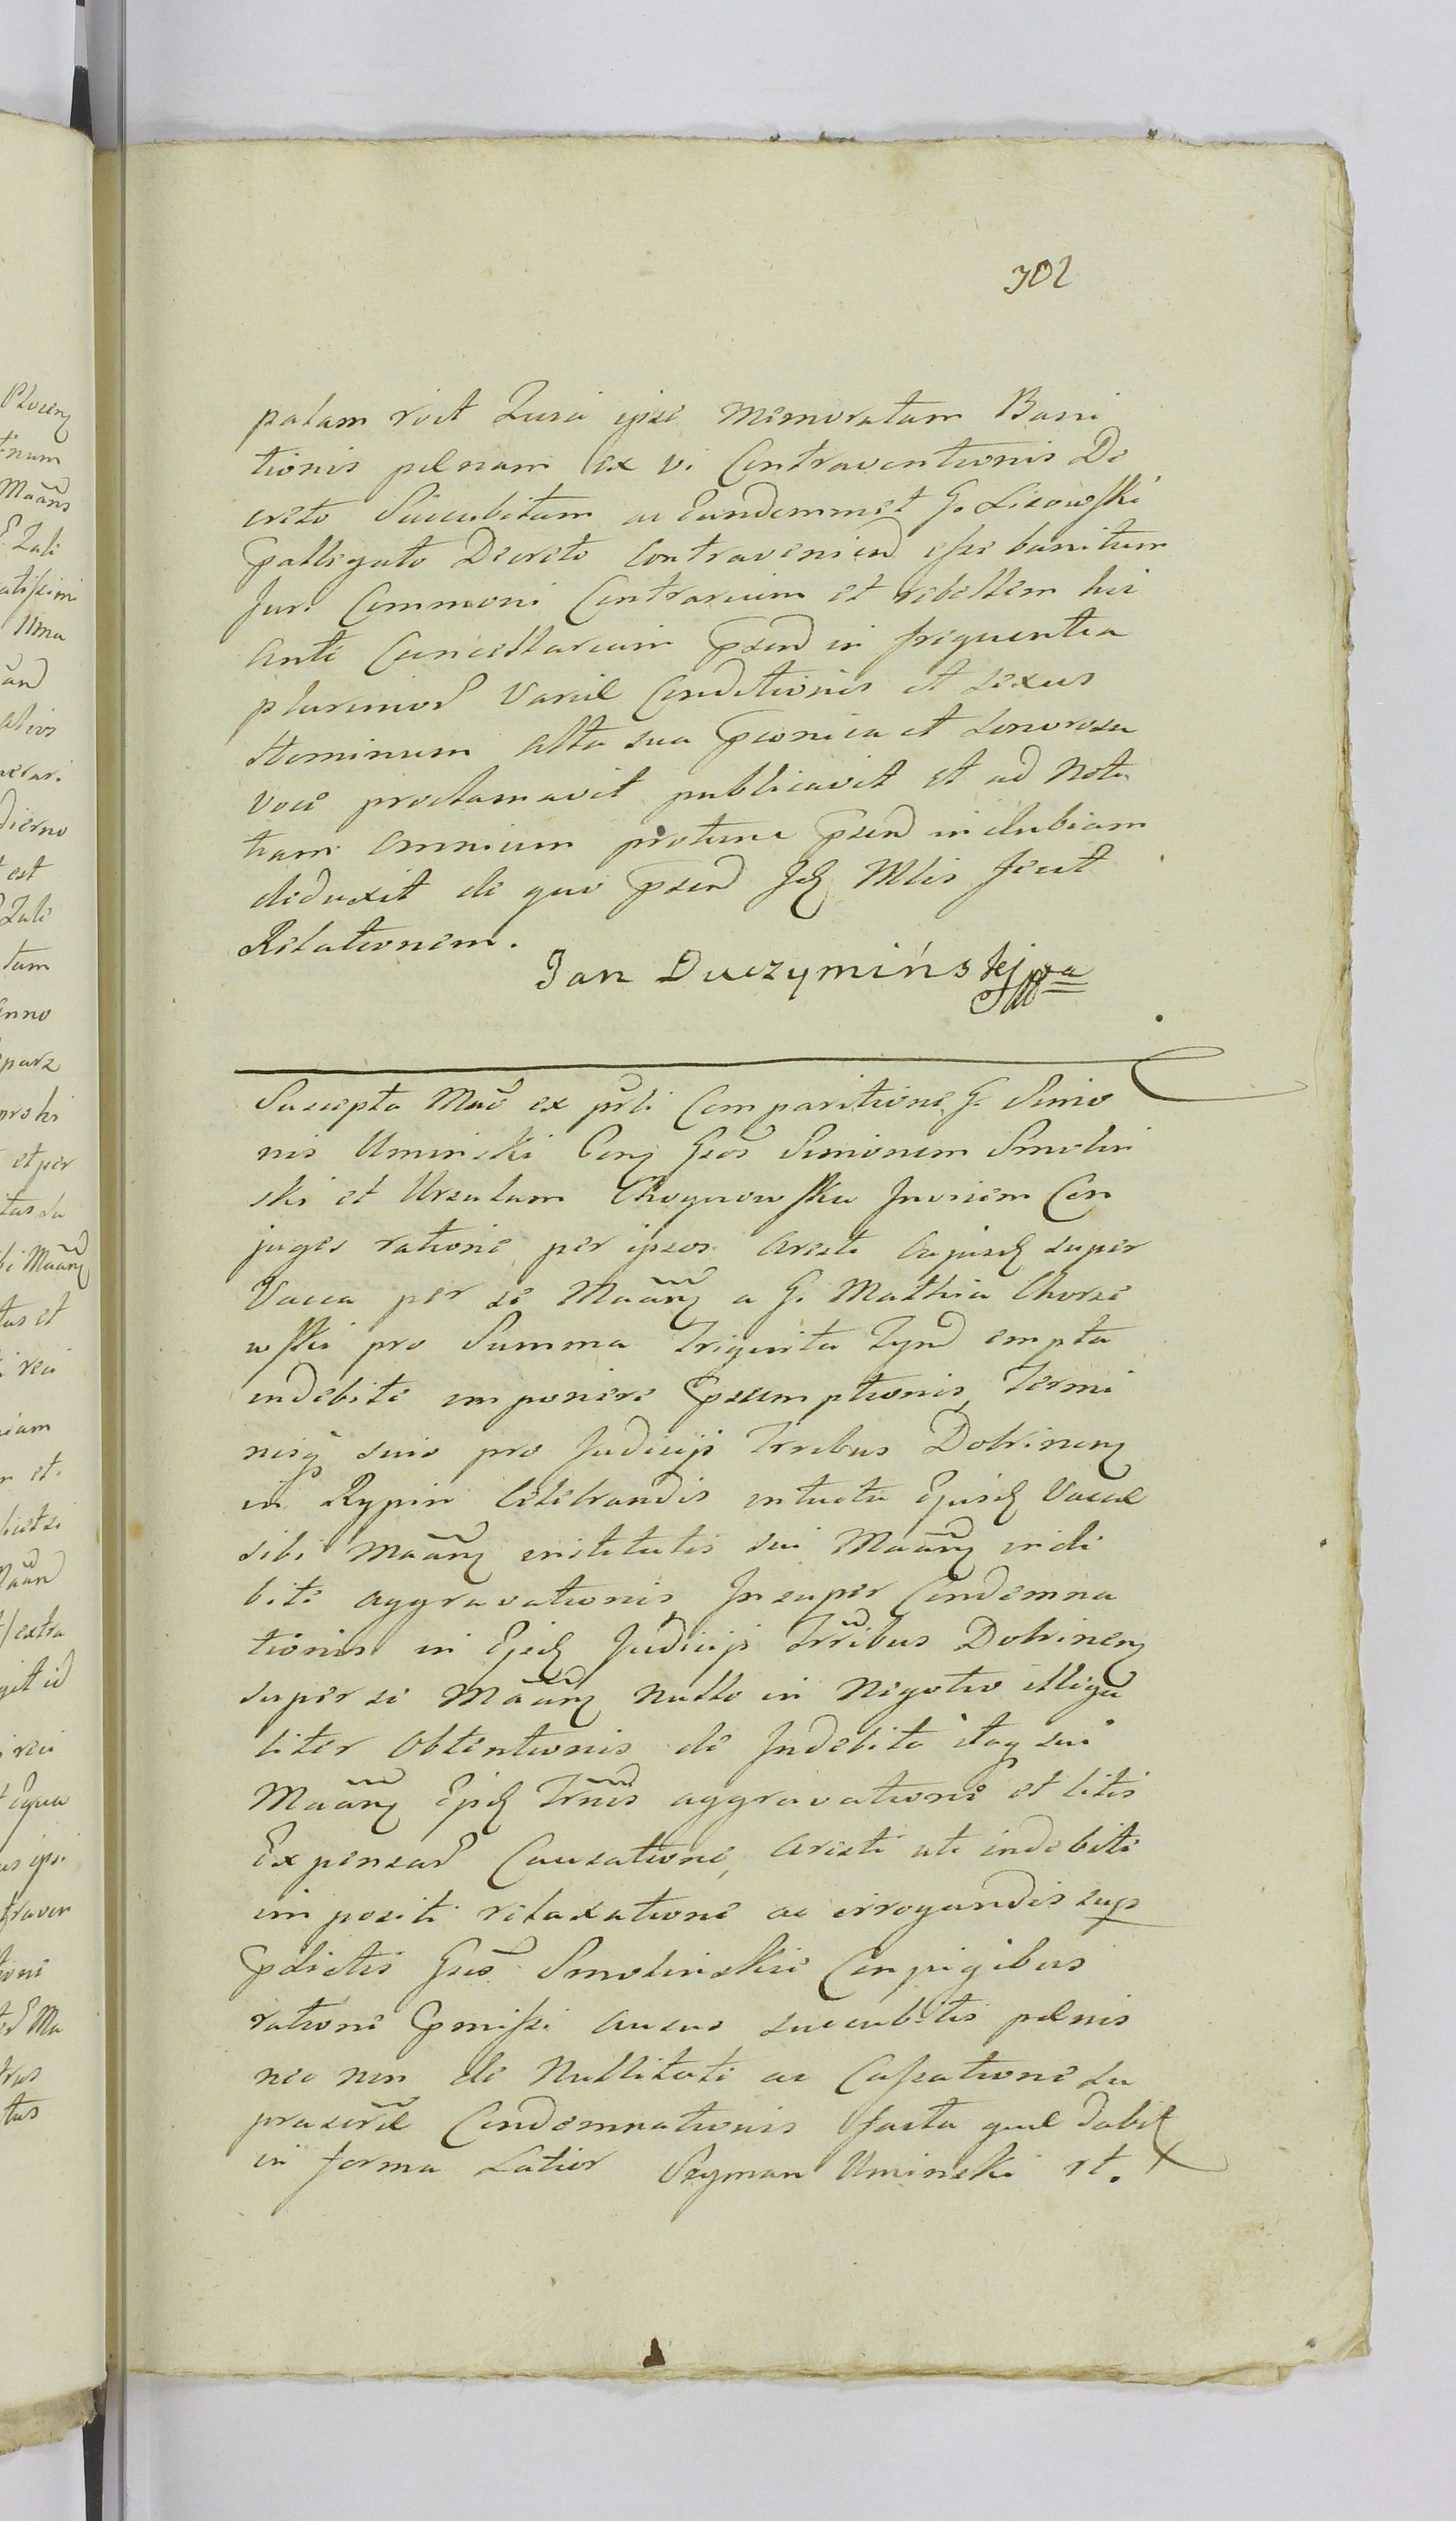 302
palam roct Zusa ipse Memoratam Bani
tionis pœnam ex vi Contraventionis De
creto Succubitam ac Eundemmet G. Lisowski
pallegato Decreto Contraveniend esse banitum
Juri Communi Contrarium et rebellem hic
Ante Cancellariam psend in frequentia
plurimor Variæ Conditionis et sexus
Hominum alta sua pconica et sonorosa
voce proclamavit publicavit et ad Noti
tiam Omnium protunc psend indubiam
deduxit de quo psend Jdq Mlis fecit
Relationem.
Jan Duczymińskj
Suscepta Mað ex psli Comparitione G. Simo
nis Uminski Conq Gsos Simonem Smolin
ski et Ursulam Choynowska Invicem Con
juges ratione per ipsos Aresti Cujusdq super
Vacca per se Maãnq a G. Mathia Chorze
wski pro Summa Triginta Tynd empta
indebite imponere psumptionis, Termi
nisq suis pro Judicijs Trribus Dobrinenq
in Rypin Celebrandis intuitu Ejusdq Vaccæ
sibi Maãnq institutis sui Maãnq inde
bite aggravationis Insuper Condemna
tionis in Ejsdq Judicijs Trribus Dobrinenq
super se Maãnq Nullo in Negotio illega
liter Obtentionis de Indebita itaq sui
Maãnq Ejsdq Trmis aggravatione et litis
Expensar Causatione, Aresti uti indebite
impositi relaxatione ac irrogandis sup
pdictis Gsis Smolinskie Conjugibus
ratione pmissi ausus succubitis pœnis
nec non de Nullitate ac Cassatione su
prascræ Condemnationis facta quæ dabit
in forma Latior Szyman Uminski rt.